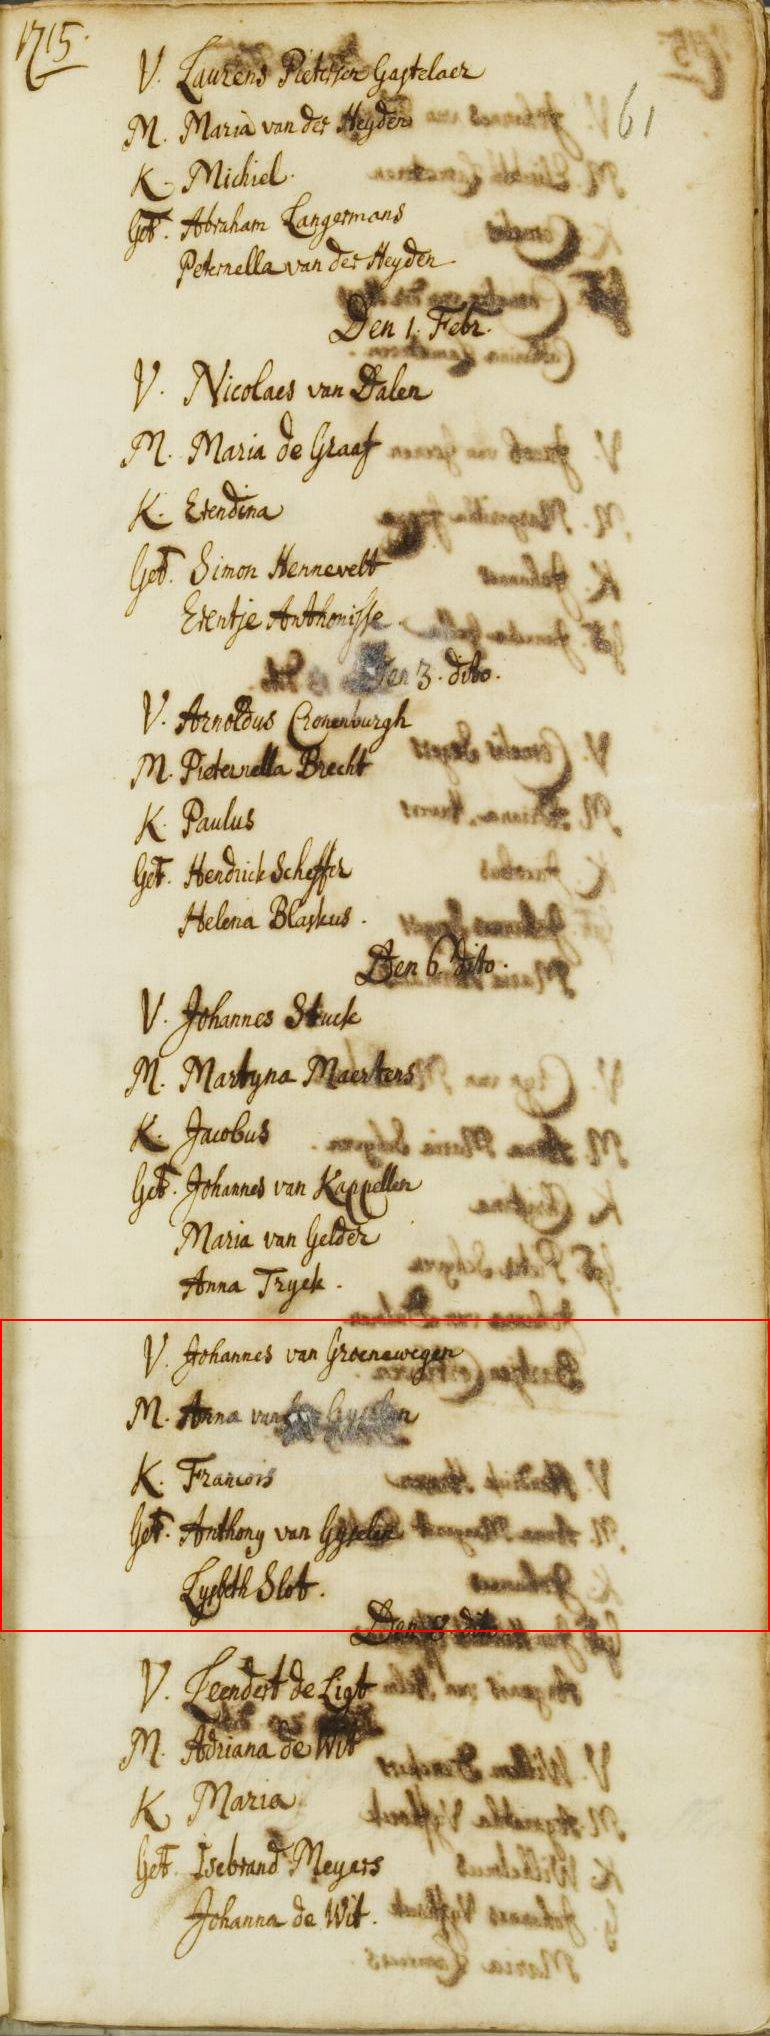 1715.
61
V. Laurens Pieterssen Gastelaer
M. Maria van der Heyden
K. Michiel.
Get. Abraham Langermans
Peternella van der Heyden
Den 1. Febr.
V. Nicolaes van Dalen
M. Maria de Graaf
K. Erendina
Get. Simon Hennevelt
Erentje Anthonisse.
Den 3. dito.
V. Arnoldus Cronenburgh
M. Pieternella Brecht
K. Paulus
Get. Hendrick Scheffer
Helena Blaskus.
Den 6. dito.
V. Johannes Stuck
M. Martyna Maertens
K. Jacobus
Get. Johannes van Kappellen
Maria van Gelder
Anna Tryck.
V. Johannes van Groenewegen
M. Anna van Gyselen
K. Francois
Get. Anthony van Gyselen
Lysbeth Slot.
Den 8. dito
V. Leendert de Ligt
M. Adriana de Wit
K Maria
Get. Isebrand Meyers
Johanna de Wit.